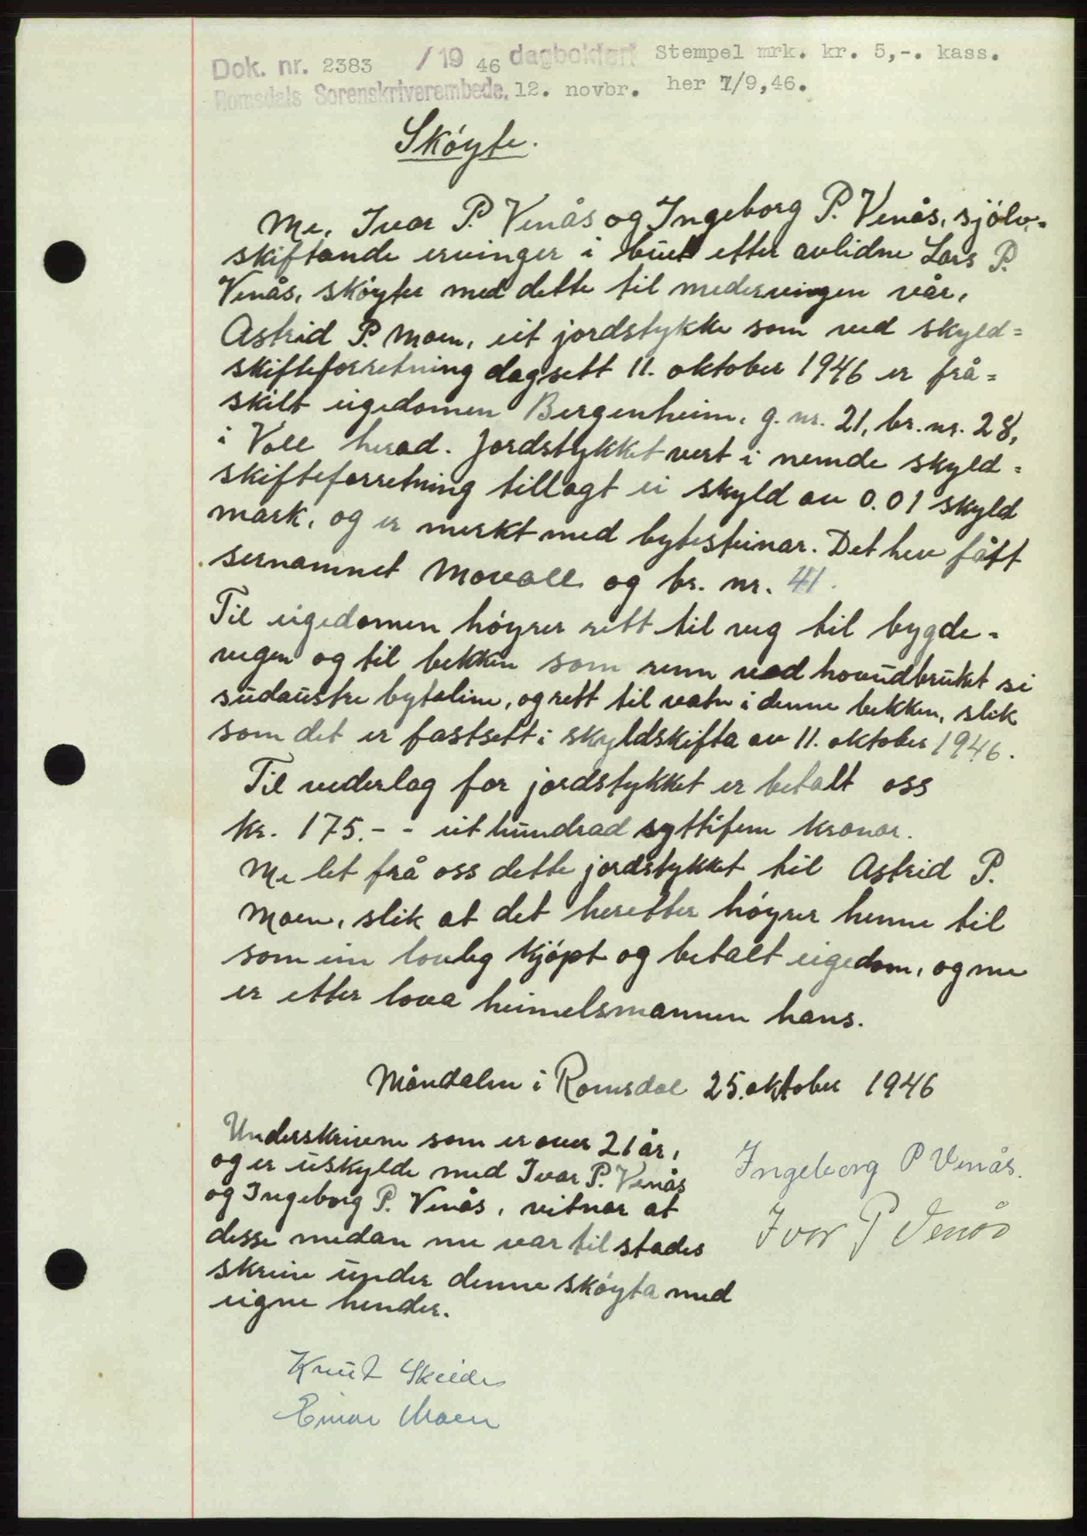 Dok. nr. 2383 /19 46 dagbokført Stempel mrk. kr. 5,-. kass.
Romsdals Sorenskriverembede, 12. novbr. her 7/9,46.
Skøyte.
Me, Ivar P. Venås og Ingeborg P. Venås, sjølv-
skiftande ervinger i buet etter avlidne Lars P.
Venås, skøyter med dette til medervingen vår,
Astrid P. Moen, eit jordstykke som ved skyld=
skifteforretning dagsett 11. oktober 1946 er frå=
skilt eigedomen Bergenheim, g. nr. 21, br. nr. 28,
i Voll herad. Jordstykket vert i nemde skyld=
skifteforretning tillagt ei skyld av 0.01 skyld
mark, og er merkt med bytesteinar. Det hev fått
sernamnet Movoll og br. nr. 41.
Til eigedomen høyrer rett til veg til bygde-
vegen og til bekken som renn ved hovudbruket si
sudaustre byteline, og rett til vatn i denne bekken, slik
som det er fastsett i skyldskifta av 11. oktober 1946.
Til vederlag for jordstykket er betalt oss
kr. 175.- - eit hundrad syttifem kronor.
Me let frå oss dette jordstykket til Astrid P.
Moen, slik at det heretter høyrer henne til
som ein lovleg kjøpt og betalt eigedom, og me
er etter lova heimelsmannen hans.
Måndalen i Romsdal 25. oktober 1946
Underskrivene som er over 21 år,
og er uskylde med Ivar P. Venås
og Ingeborg P. Venås, vitnar at
desse medan me var til stades
skreiv under denne skøyta med
eigne hender.
Ingeborg P Venås.
Ivar P Venås
Knut Skeide
Einar Moen